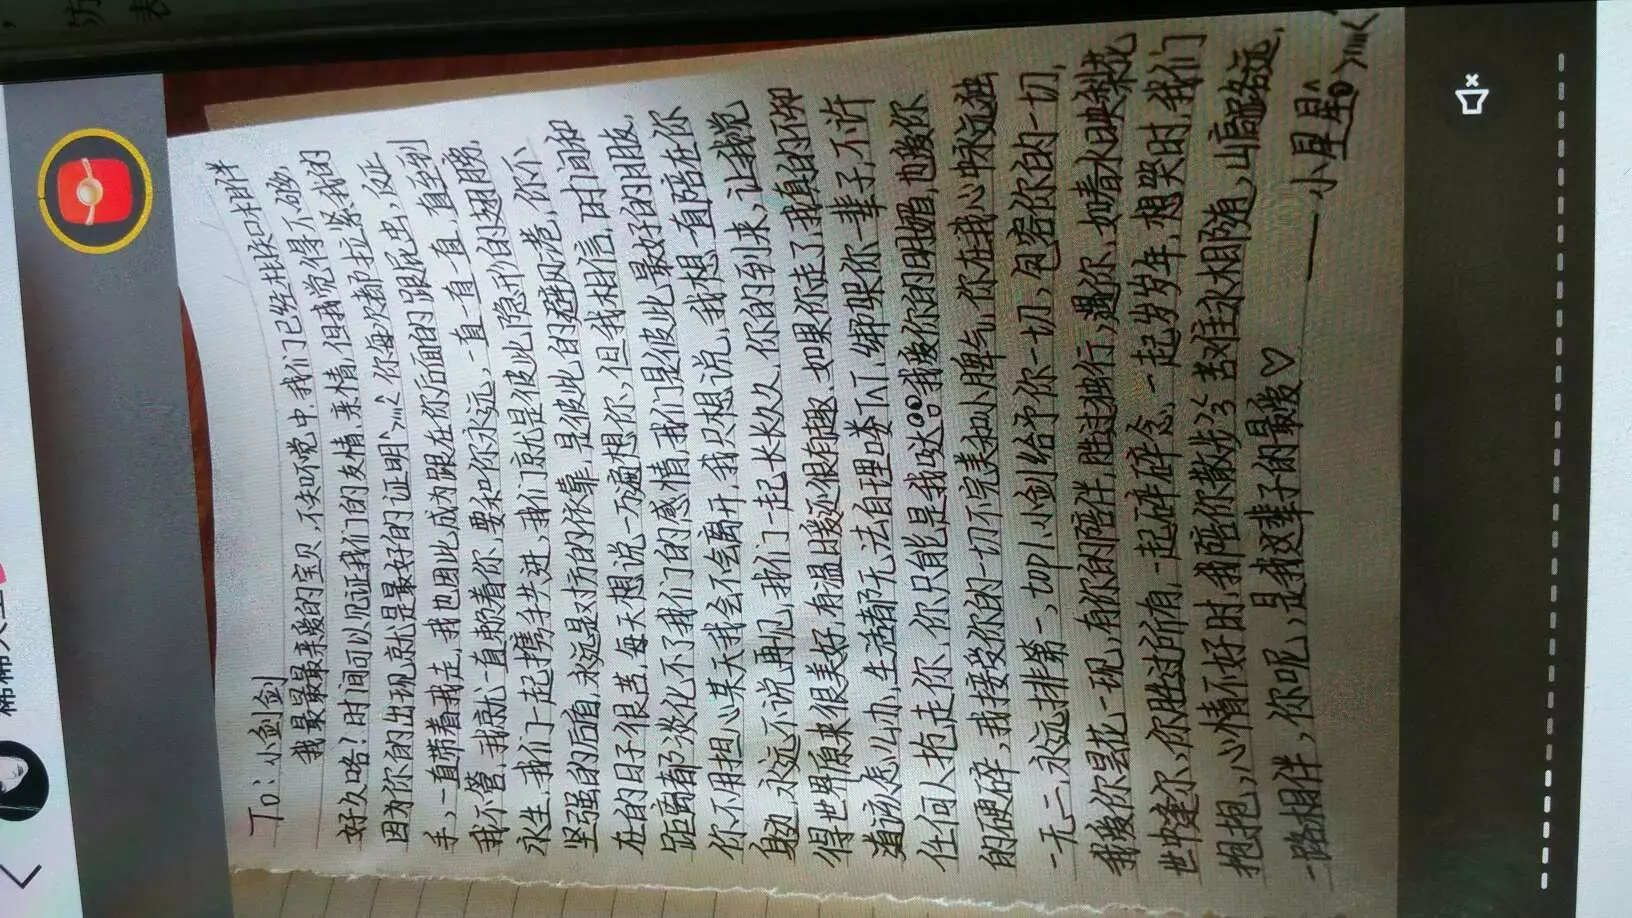 To:小剑剑
我最最最亲爱的宝贝,不知不觉中,我们已经相识相伴
好久咯!时间可以见证我们的友情,亲情,但我说得不够,
因为你的出现就是最好的证明
手,一直带着我走,我也因此成为跟在你后面的跟屁虫,反正
我不管,我就一直賴着你,要和你永远,一直一直一直,直到
永生,我们一起携手共进,我们就是彼此隐形的翅膀,
坚强的后盾,永远是对方的依靠,是彼此的避风港,你不
在的日子很苦,每天想说一万遍想你,但我相信,时间和
距离都淡化不了我们的感情,我们是彼此最好的闺蜜,
你不用担心某天我会不会离开,我只想说,我想一直陪在你
身边,永远不说再见,我们一起长长久久,你的到来,让我觉
得世界原来很美好,有温暖还很有趣,如果你走了,我真的不知
道该怎么办,生活都无法自理喽TAT,绑架你一辈子,不许
任何人抢走你,你只能是我哒 我爱你的明媚,也爱你
的破碎,我接受你的一切不完美和小脾气,你在我心中永远独
一无二,永远排第一,top1,小剑给予你一切,包容你的一切,
我爱你昙花一现,有你的陪伴,胜过独行,遇你,如春水映梨花
世中逢尔,你胜过所有,一起碎碎念,一起岁岁年,想哭时,我们
抱抱,心情不好时,我陪你散步 苦难永相随,山高路远,
一路相伴,你呢,是我这辈子的最爱♡
——小星星